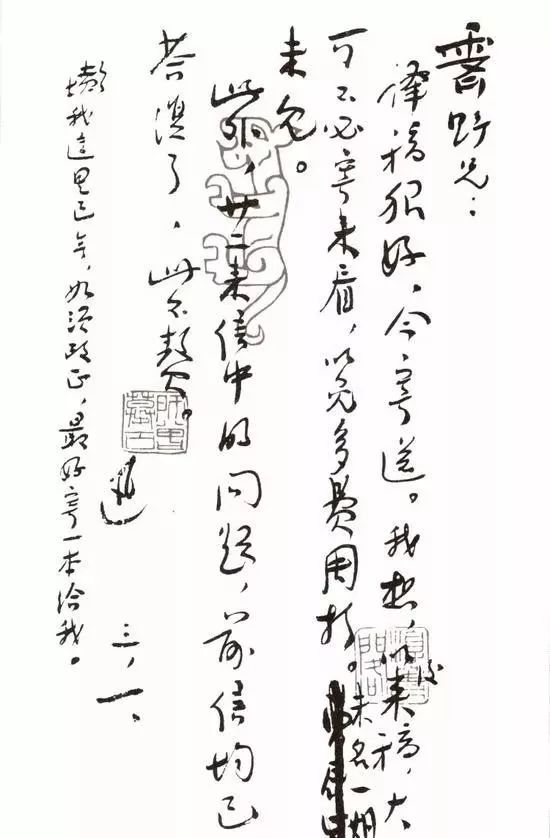 霽野兄：
譯稿很好，今寄還。我想，以後来稿，大
可不必寄来看，以免多費周折。未名一期
未見。
此外，廿二来信中的問題，前信均已
答復了，此不赘。
迅 三，一、
墳我這里已無，如須改正，最好寄一本給我。